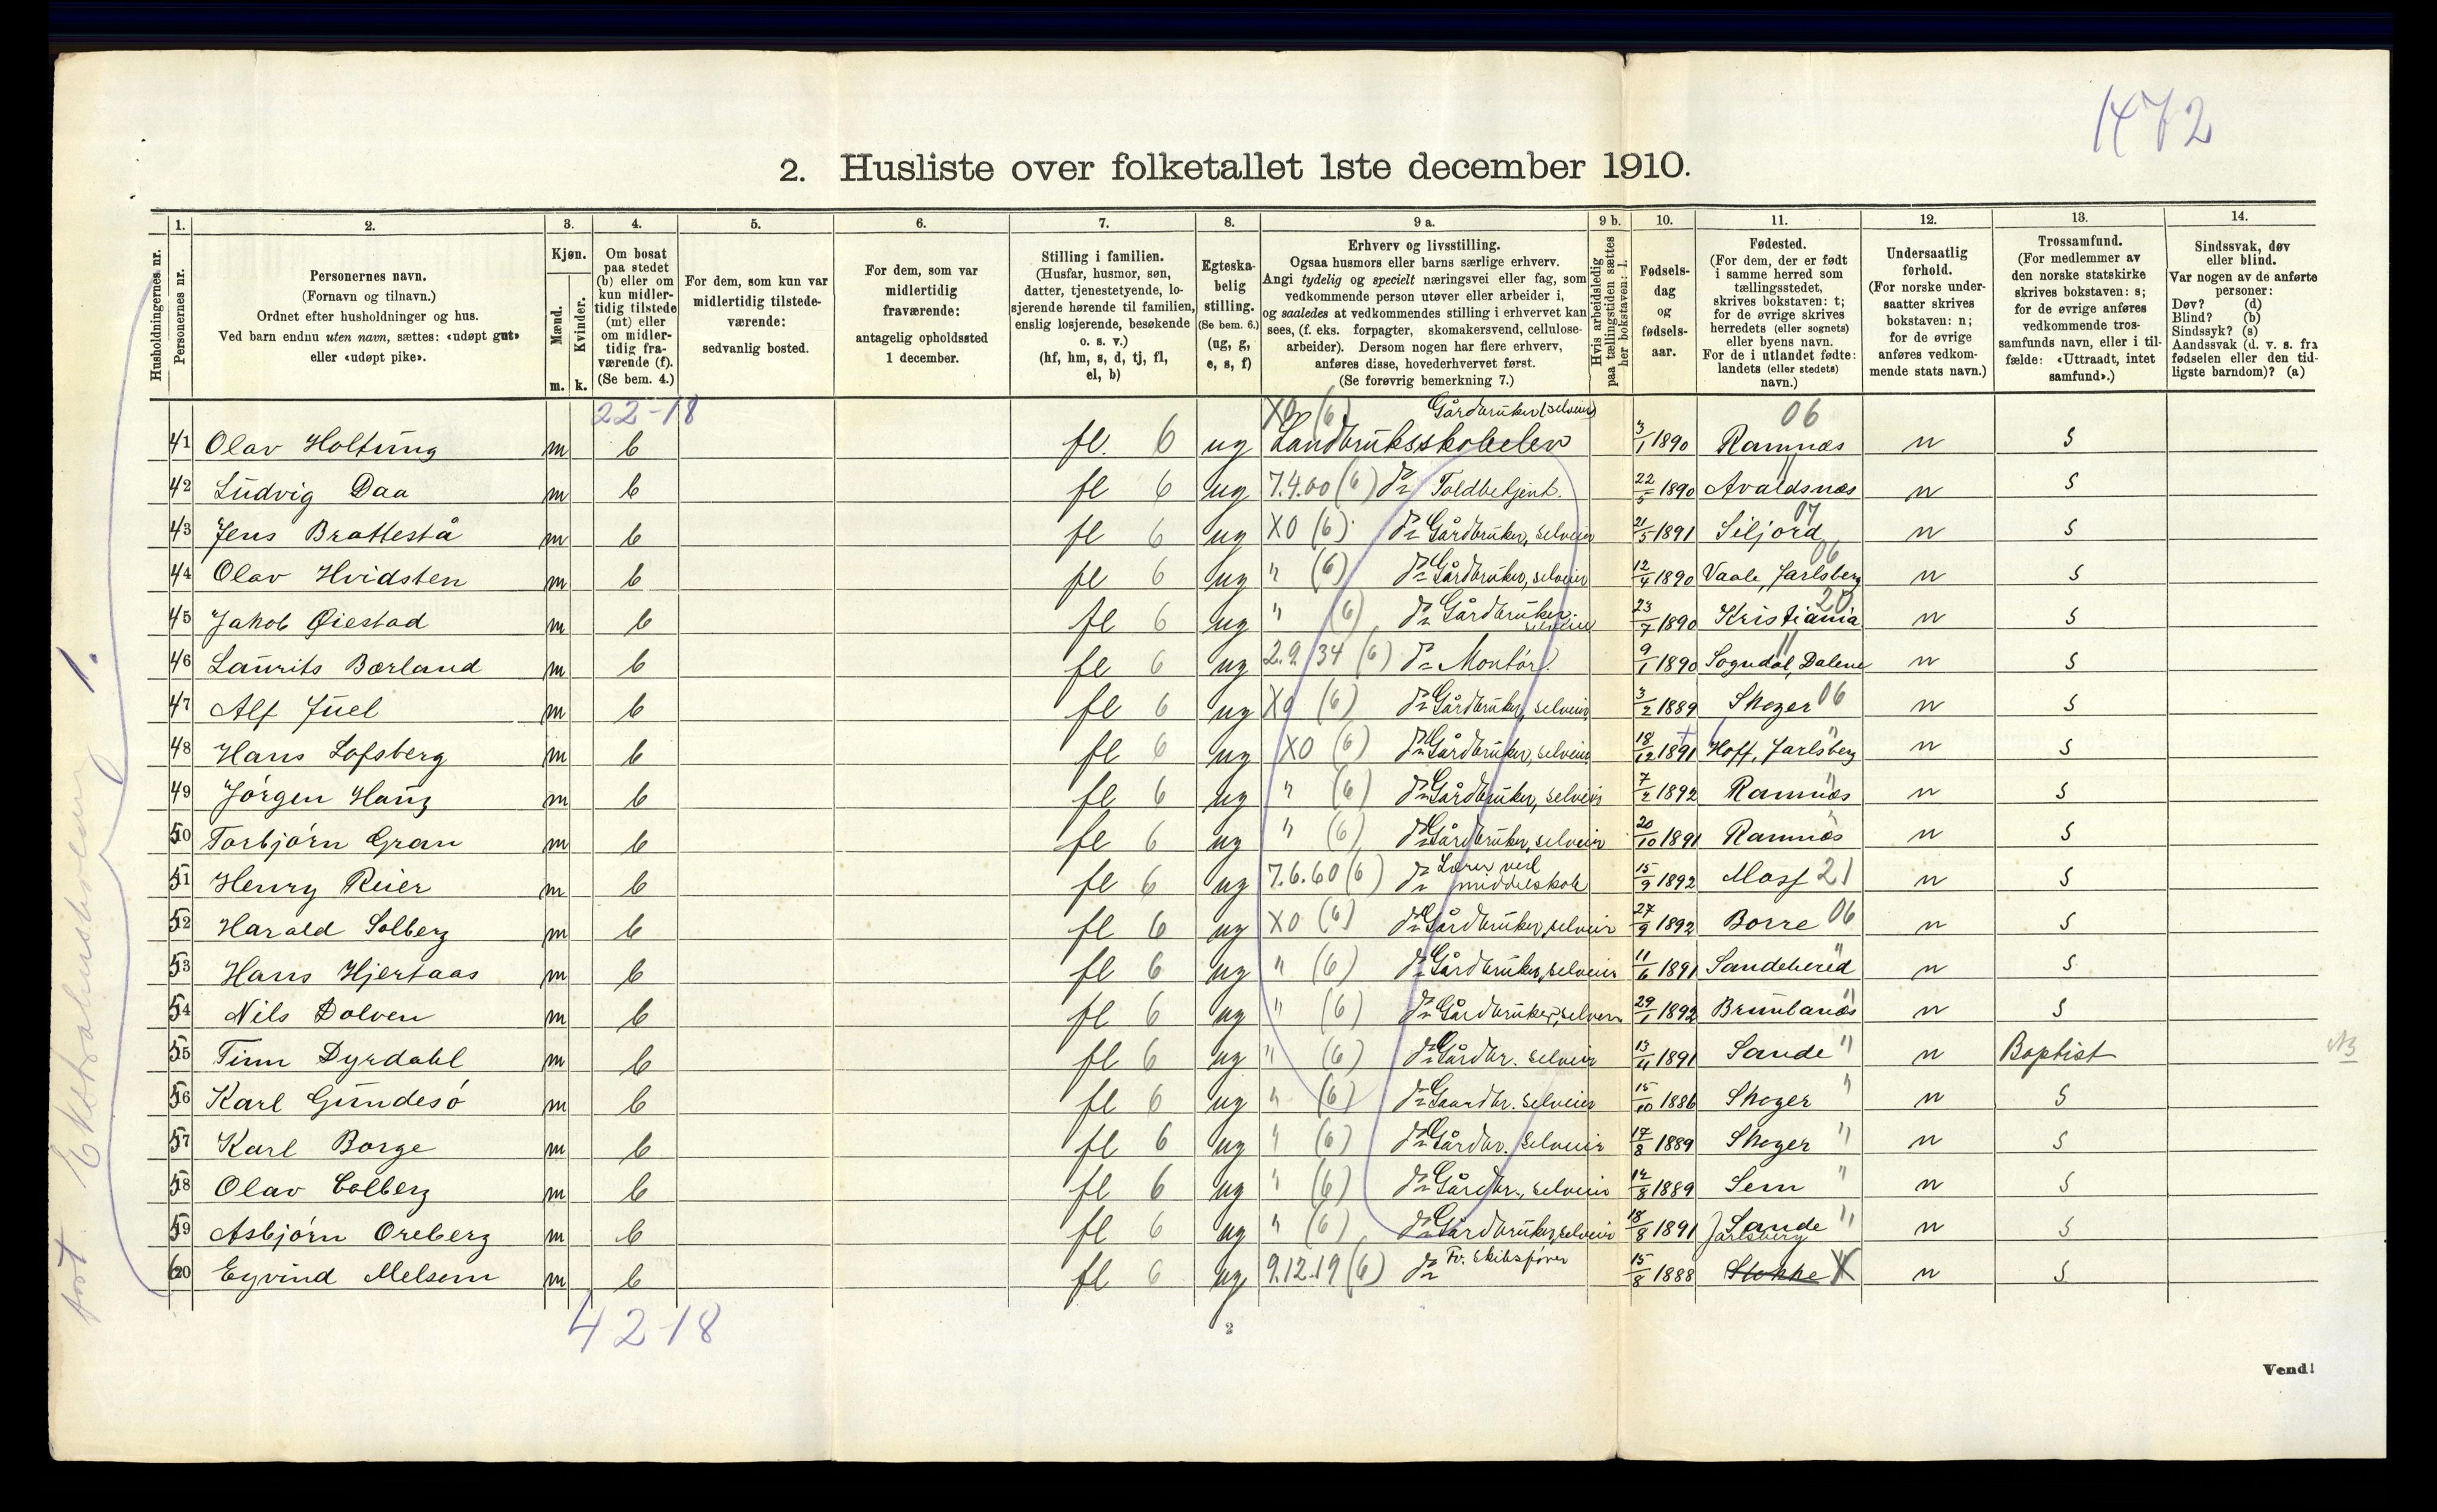 1472
2. Husliste over folketallet 1ste december 1910.
Husholdningernes nr.
1. Personernes nr.
2. Personernes navn. (Fornavn og tilnavn.) Ordnet efter husholdninger og hus. Ved barn endnu uten navn, sættes: «udøpt gut» eller «udøpt pike».
3. Kjøn. Mænd. m. Kvinder. k.
4. Om bosat paa stedet (b) eller om kun midlertidig tilstede (mt) eller om midlertidig fraværende (f). (Se bem. 4.)
5. For dem, som kun var midlertidig tilstedeværende: sedvanlig bosted.
6. For dem, som var midlertidig fraværende: antagelig opholdssted 1 december.
7. Stilling i familien. (Husfar, husmor, søn, datter, tjenestetyende, losjerende hørende til familien, enslig losjerende, besøkende o. s. v.) (hf, hm, s, d, tj, fl, el, b)
8. Egteskabelig stilling. (Se bem. 6.) (ug, g, e, s, f)
9 a. Erhverv og livsstilling. Ogsaa husmors eller barns særlige erhverv. Angi tydelig og specielt næringsvei eller fag, som vedkommende person utøver eller arbeider i, og saaledes at vedkommendes stilling i erhvervet kan sees, (f. eks. forpagter, skomakersvend, cellulosearbeider). Dersom nogen har flere erhverv, anføres disse, hovederhvervet først. (Se forøvrig bemerkning 7.)
9 b. Hvis arbeidsledig paa tællingstiden sættes her bokstaven: l.
10. Fødselsdag og fødselsaar.
11. Fødested. (For dem, der er født i samme herred som tællingsstedet, skrives bokstaven: t; for de øvrige skrives herredets (eller sognets) eller byens navn. For de i utlandet fødte: landets (eller stedets) navn.)
12. Undersaatlig forhold. (For norske undersaatter skrives bokstaven: n; for de øvrige anføres vedkommende stats navn.)
13. Trossamfund. (For medlemmer av den norske statskirke skrives bokstaven: s; for de øvrige anføres vedkommende trossamfunds navn, eller i tilfælde: «Uttraadt, intet samfund».)
14. Sindssvak, døv eller blind. Var nogen av de anførte personer: Døv? (d) Blind? (b) Sindssyk? (s) Aandssvak (d. v. s. fra fødselen eller den tidligste barndom)? (a)
22-18
41 Olav Holtung m b fl. 6 ug X0 (6) Gårdbruker (selveier) Landbruksskoleelev 3/1 1890 Ramnæs 06 n s
42 Ludvig Daa m b fl 6 ug 7.4.00 (6) do Toldbetjent. 22/5 1890 Avaldsnæs 11 n s
43 Jens Brattestå m b fl 6 ug X0 (6) do Gårdbruker, selveier 21/5 1891 Siljord 07 n s
44 Olav Hvidsten m b fl 6 ug " (6) do Gårdbruker, selveier 12/4 1890 Vaale, Jarlsberg 06 n s
45 Jakob Øiestad m b fl 6 ug " (6) do Gårdbruker, selveier 23/7 1890 Kristiania 20 n s
46 Laurits Bærland m b fl 6 ug 2.9.34 (6) do Montör 9/1 1890 Sogndal, Dalene 11 n s
47 Alf Juel m b fl 6 ug X0 (6) do Gårdbruker, selveier 3/2 1889 Skoger 06 n s
48 Hans Lofsberg m b fl 6 ug X0 (6) do Gårdbruker, selveier 18/12 1891 Hoff, Jarlsberg " n s
49 Jörgen Haug m b fl 6 ug " (6) do Gårdbruker, selveier 7/2 1892 Ramnæs " n s
50 Torbjörn Gran m b fl 6 ug " (6) do Gårdbruker, selveier 20/10 1891 Ramnæs " n s
51 Henry Reier m b fl 6 ug 7.6.60 (6) do Lærer ved middelskole 15/9 1892 Moss 21 n s
52 Harald Solberg m b fl 6 ug X0 (6) do Gårdbruker, selveier 27/9 1892 Borre 06 n s
53 Hans Hjertaas m b fl 6 ug " (6) do Gårdbruker, selveier 11/6 1891 Sandeherred " n s
54 Nils Dolven m b fl 6 ug " (6) do Gårdbruker, selveier 29/1 1892 Brunlanæs " n s
55 Finn Dyrdahl m b fl 6 ug " (6) do Gårdbr. selveier 13/11 1891 Sande " n Baptist
56 Karl Gundesö m b fl 6 ug " (6) do Gaardbr. selveier 15/10 1886 Skoger " n s
57 Karl Borge m b fl 6 ug " (6) do Gårdbr. selveier 17/8 1889 Skoger " n s
58 Olav Colberg m b fl 6 ug " (6) do Gårdbr., selveier 12/8 1889 Sem " n s
59 Asbjörn Oreberg m b fl 6 ug " (6) do Gårdbruker, selveier 18/8 1891 Sande Jarlsberg " n s
60 Eyvind Melsom m b fl 6 ug 9.12.19 (6) do Fv. Skibsfører 15/8 1888 Stokke X n s
42-18
2
Vend!